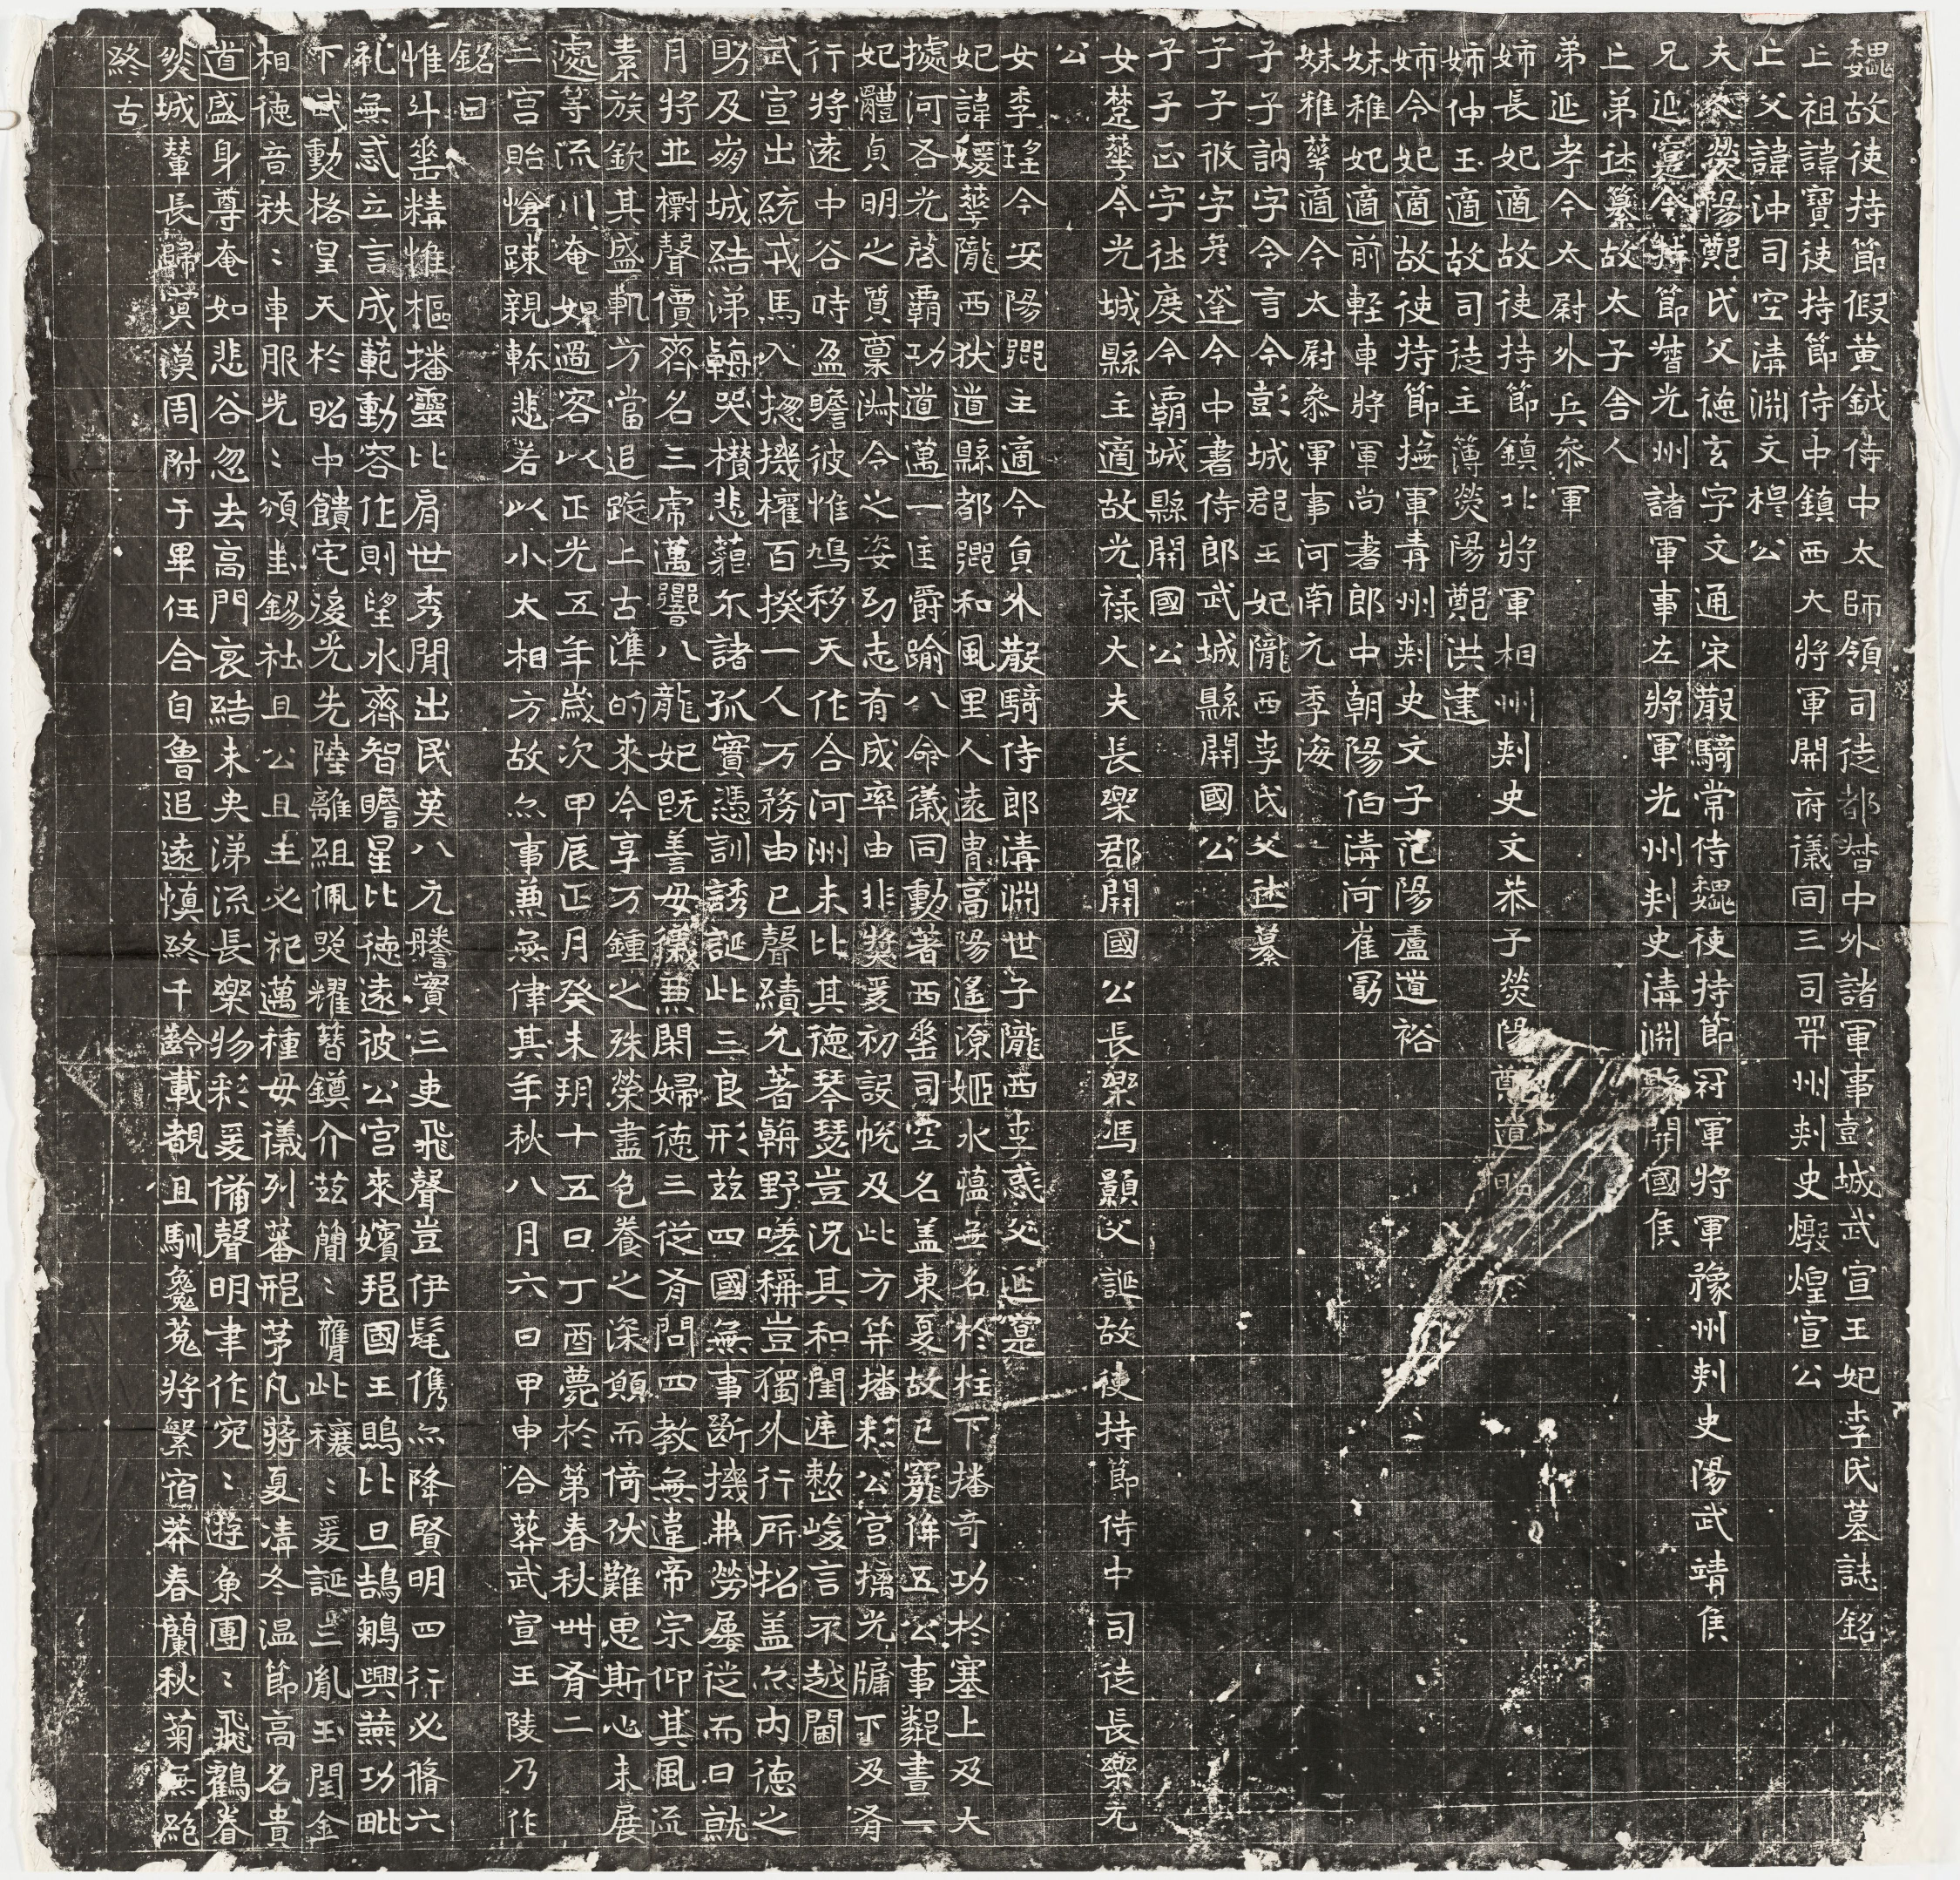 魏故使持節假黃鉞侍中太師領司徒都督中外諸軍事彭城武宣王妃李氏墓誌銘
亡祖諱寶使持節侍中鎮西大將軍開府儀同三司并州刺史燉煌宣公
亡父諱沖司空清淵文穆公
夫人滎陽鄭氏父德玄字文通宋散騎常侍魏使持節冠軍將軍豫州刺史陽武靖侯
兄延寔今持節督光州諸軍事左將軍光州刺史清淵縣開國侯
亡弟休纂故太子舍人
弟延孝今太尉外兵參軍
姉長妃適故使持節鎮北將軍相州刺史文恭子滎陽鄭道昭
姉仲玉適故司徒主簿滎陽鄭洪建
姉令妃適故使持節撫軍青州刺史文子范陽盧道裕
妹稚妃適前輕車將軍尚書郎中朝陽伯清河崔勗
妹稚華適今太尉參軍事河南元季海
子子訥字令言今彭城郡王妃隴西李氏父休纂
子子攸字彥達今中書侍郎武城縣開國公
子子正字休度今霸城縣開國公
女楚華今光城縣主適故光祿大夫長樂郡開國公長樂馮顥父誕故使持節侍中司徒長樂元
公
女季瑤今安陽鄉主適今員外散騎侍郎清淵世子隴西李彧父延寔
妃諱媛華隴西狄道縣都鄉和風里人遠胄高陽遙源姬水蘊無名於柱下播奇功於塞上及大
據河右光啓霸功道邁一匡爵踰八命儀同勳著西垂司空名蓋東夏故已寵侔五公事鄰晝一
妃體貞明之質稟淑令之姿幼志有成率由非獎爰初設帨及此方笄播彩公宮摛光牖下及肴
行將遠中谷時盈瞻彼惟鳩移天作合河洲未比其德琴瑟豈況其和閨連愸峻言不越閫
武宣出統戎馬入揔機權百揆一人万務由己聲績允著朝野嗟稱豈獨外行所招蓋亦內德之
助及崩城結涕鄰哭欑悲藐尔諸孤實憑訓誘誕此三良形茲四國無事斷機弗勞屢徙而日就
月將並檦聲價齊名三虎邁響八龍妃旣善母儀兼閑婦德三從肴問四教無違帝宗仰其風流
素族欽其盛軌方當追蹤上古準的來今享万鍾之殊榮盡色養之深願而倚伏難思斯心未展
處等流川奄如過客以正光五年歲次甲辰正月癸未朔十五日丁酉薨於第春秋卌肴二
二宮貽愴踈親軫悲若以小太相方故亦事兼無律其年秋八月六日甲申合葬武宣王陵乃作
銘曰
惟斗垂精惟樞播靈比肩世秀閒出民英八元騰實三吏飛聲豈伊髦儁亦降賢明四行必脩六
礼無忒立言成範動容作則望水齊智瞻星比德遠彼公宮來嬪邦國王鵙比旦鵠鵴興燕功毗
下武勳格皇天於昭中饋宅後光先陸離組佩煚耀簪鎮介茲簡〻膺此穰〻爰誕三胤玉閏金
相德音秩〻車服光〻頒圭錫社且公且王必祀邁種母儀列蕃邢茅凡蔣夏清冬温節高名貴
道盛身尊奄如悲谷忽去高門哀結未央涕流長樂物彩爰備聲明聿作宛〻遊魚團〻飛鶴眷
然城輦長歸冥漠周附于畢任合自魯追遠愼終千齡載覩且馴毚菟將繁宿莽春蘭秋菊無絕
終古